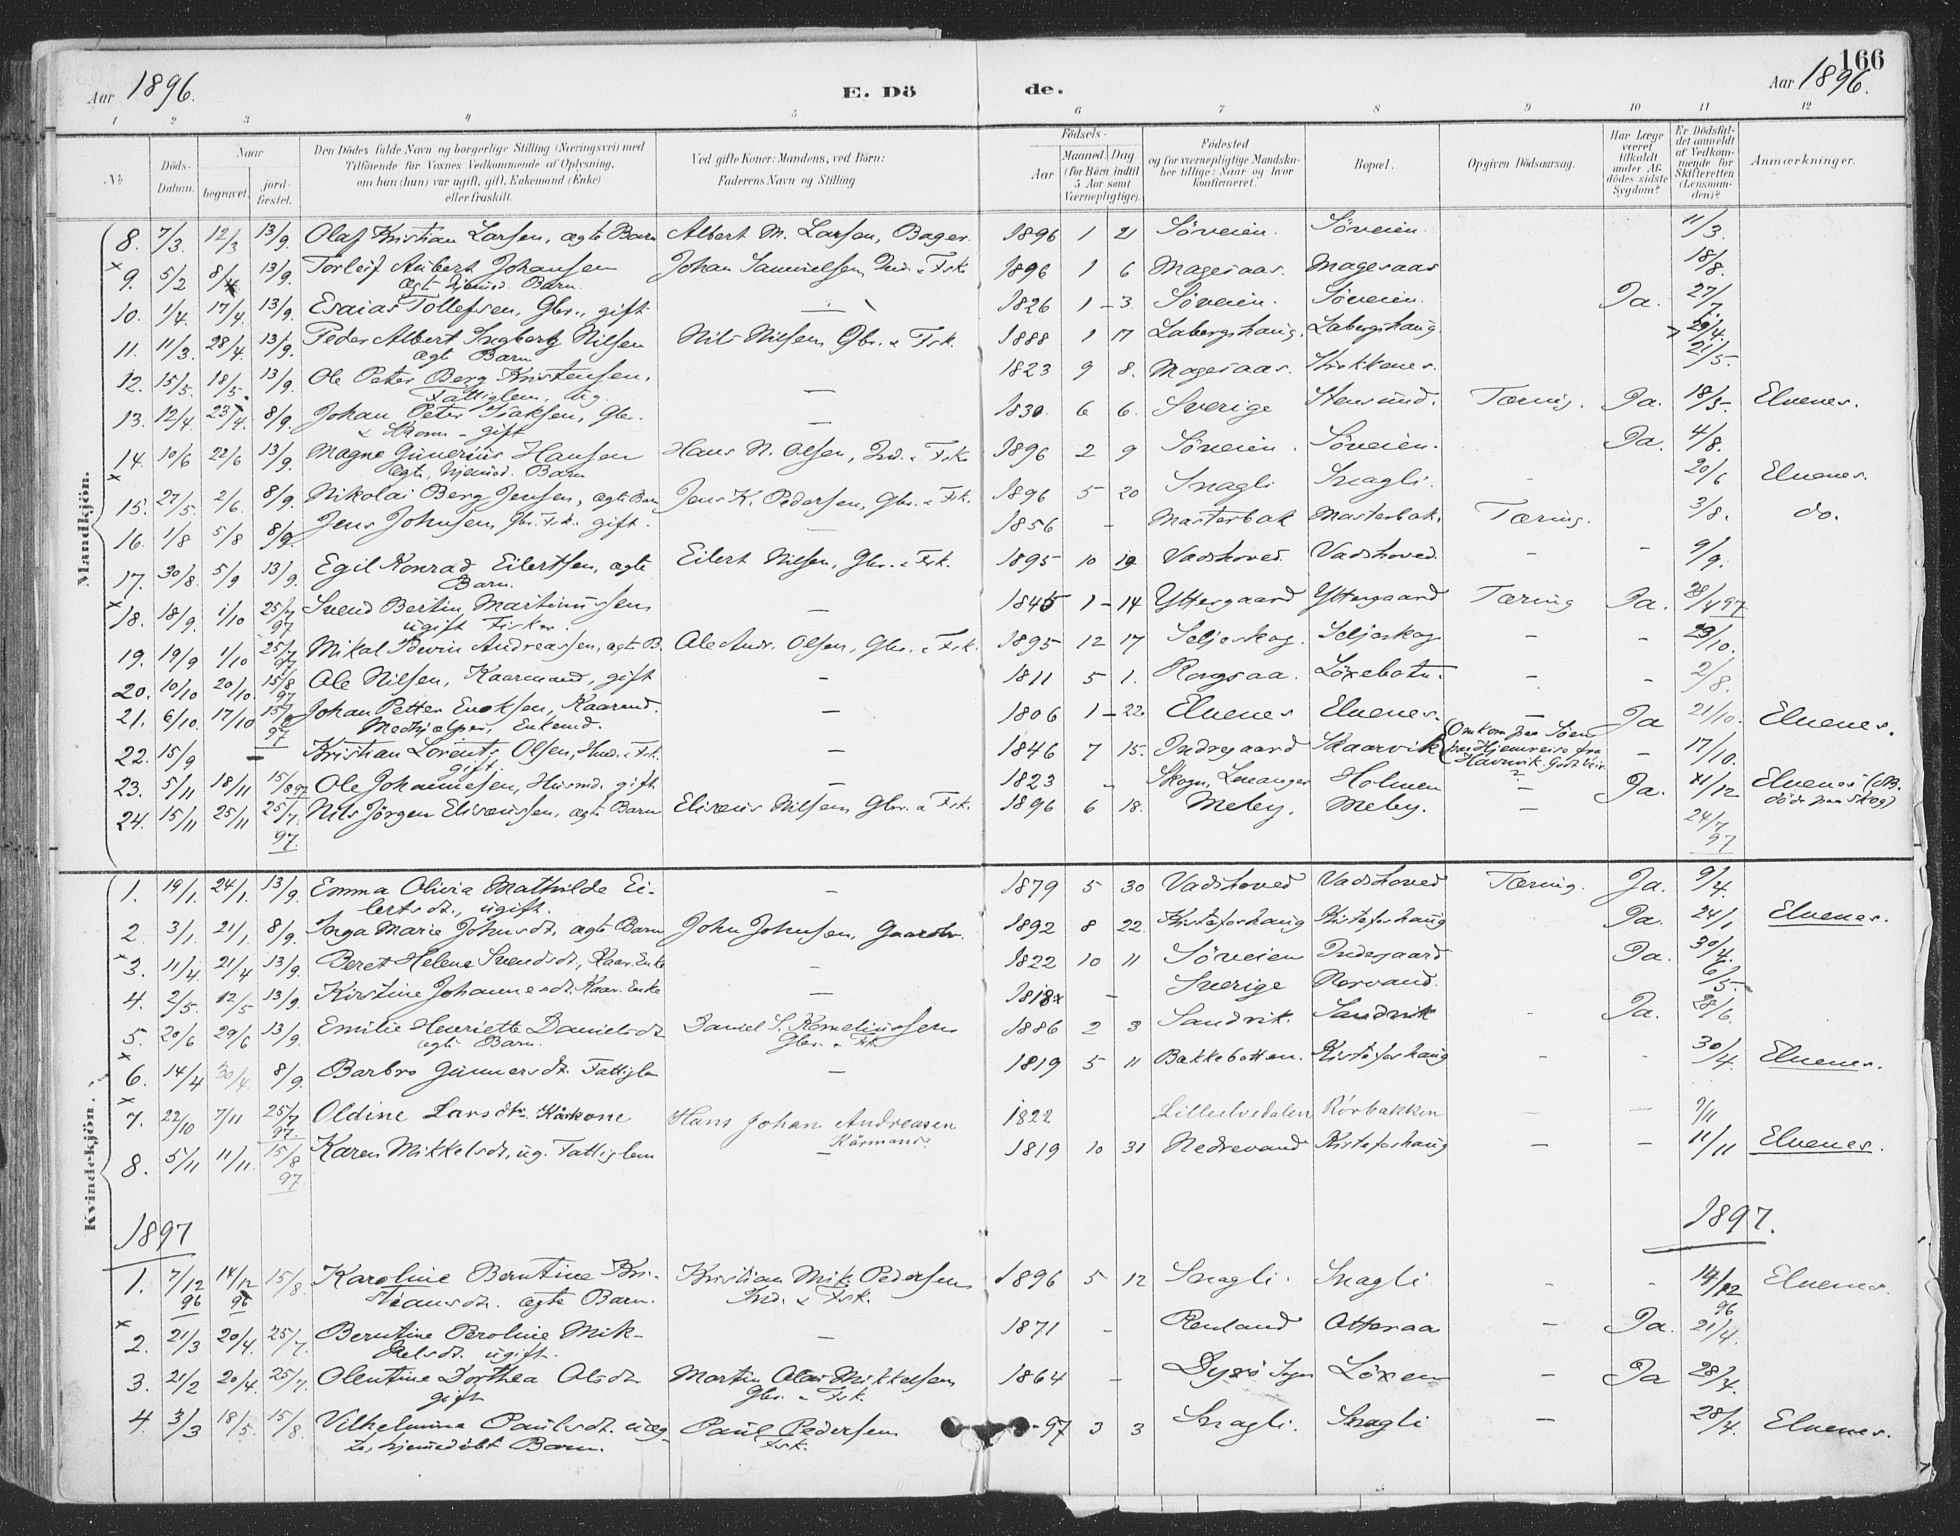 166
Aar 1896.
E. Dö de.
Aar 1896.
1 2 3 4 5 6 7 8 9 10 11 12
No.
Döds-Datum.
Naar
begravet.
jord-fæstet.
Den Dödes fulde Navn og borgerlige Stilling (Næringsvei) med
Tilföiende for Voxnes Vedkommende af Oplysning,
om han (hun) var ugift, gift, Enkemand (Enke)
eller fraskilt.
Ved gifte Koner: Mandens, ved Börn:
Faderens Navn og Stilling
Födsels-
Aar
Maaned. Dag
(for Börn indtil
5 Aar samt
Værnepligtige).
Födested
og for værnepligtige Mandska-
ber tillige: Naar og hvor
konfirmeret.
Bopæl.
Opgiven Dödsaarsag.
Har Læge
været
tilkaldt
under Af-
dödes sidste
Sygdom?
Er Dödsfal-
det anmeldt
af Vedkom-
mende for
Skifteretten
(Lensman-
den)?
Anmærkninger.
Mandkjön.
8. 7/3. 12/3 13/9. Olaf Kristian Larsen, ægte Barn Albert M. Larsen, Bager. 1896 1 21 Söveien. Söveien. 11/3.
9. 5/2 8/4 13/9. Torleif Aubert Johansen Johan Samuelsen, Ind. & Fsk 1896 1 6 Magesaas. Magesaas 18/8.
ægte hjemmd. Barn.
10. 1/4. 17/4. 13/9. Esaias Tollefsen, Gbr., gift — 1826 1 - 3. Söveien. Söveien. Ja. 27/7.
11. 11/3. 28/4. 13/9. Peder Albert Ingberg Nilsen Nils Nilsen, Gbr. & Fsk. 1888 1 17 Labergshaug. Labergshaug 29/4.
ægte Barn
12. 15/5. 18/5. 13/9. Ole Peter Berg Kristensen, — 1823 9 8. Magesaas. Stokkenes. 21/5.
Fattiglem, ug.
13. 12/4. 23/4. 8/9. Johan Peter Isaksen, Gbr. — 1830. 6 6. Sverige Stensund. Tæring. Ja. 18/5. Elvenes.
gift
14. 10/6 22/6 13/9. Magne Gunerius Hansen Hans N. Olsen, Ind. & Fsk 1896 2 9 Söveien. Söveien. Ja. 4/8.
ægte, hjemmd. Barn
15. 27/5. 2/6. 8/9. Nikolai Berg Jensen, ægte Barn Jens K. Pedersen, Gbr. & Fsk. 1896 5 20 Snagli Snagli. - 20/6 Elvenes.
16. 1/8 5/8 8/9. Jens Johnsen, Gbr. Fsk. gift. — 1856 - Masterbak Masterbak. Tæring. 3/8. do.
17. 30/8. 5/9 13/9. Egil Konrad Eilertsen, ægte Eilert Nilsen, Gbr. & Fsk. 1895 10 19 Vadshoved. Vadshoved - - 9/9.
Barn.
18. 18/9. 1/10 25/7 97 Svend Bertin Martinussen — 1845 1 - 14 Yttergaard Yttergaard Tæring Ja. 28/4 97
ugift Fisker.
19. 19/9 1/10 25/7 97 Mikal Edvin Andreassen, ægte B. Ole Andr. Olsen, Gbr. & Fsk. 1895 12 17 Seljeskog. Seljeskog - - 29/10.
20. 10/10 20/10. 15/8 97 Ole Nilsen, Kaarmand, gift — 1811 5 1. Rongsaa. Löxebotn. - - 2/8.
21. 6/10. 17/10 15/8 97 Johan Petter Enoksen, Kaarmd. — 1806 1 - 22. Elvenes Elvenes. — Ja 21/10. Elvenes.
Medhjælper, Enkemd.
22. 15/9 — Kristian Lorents Olsen, Hmd. & Fsk. — 1846 7 15. Indregaard Skaarvik (Omkom paa Söen
paa Hjemreise fra
Havnvik. Godt Veir. — 17/10.
gift.
23. 5/11 18/11 15/8 97 Ole Johannesen, Husmd. gift — 1823 - Skogn, Levanger Holmen - Ja. 21/12 Elvenes (NB.
döde paa Skog)
24. 15/11 25/11 25/7. 97. Nils Jörgen Elisæussen, ægte Barn Elisæus Nilsen, Gbr. & Fsk. 1896 6 18. Meby. Meby. — 24/7 97
Kvindekjön.
1. 19/1. 24/1. 13/9. Emma Olivia Mathilde Ei- — 1879 5 30 Vadshoved Vadshoved Tæring. Ja. 9/4.
lertsdt., ugift.
2. 3/1. 21/1. 8/9. Inga Marie Johnsdt, ægte Barn John Johnsen, Gaardbr. 1892 8 22. Kristofershaug Kristofershaug Ja. 24/1 Elvenes.
3. 11/4. 21/4 13/9. Beret Helene Svendsdt, Kaar. Enke — 1822 10 11 Söveien Indregaard Ja. 30/4.
4. 2/5. 12/5 13/9. Kirstine Johannesdt. Kaar. Enke — 1818 - Sverige Rorvand. 6/5-
5. 20/6 29/6 13/9. Emilie Henriette Danielsdt Daniel S. Korneliussen 1886 2 3 Sandvik. Sandvik Ja. 28/6.
ægte Barn. Gbr. & Fsk
6. 14/4 30/4. 8/9. Barbro Gunnersdt. Fattiglem — 1819 5 11 Bakkebotten. Kristofershaug - - 30/4. Elvenes.
7. 22/10 7/11 25/7 97. Oldine Larsdtr. Kårkone Hans Johan Andreasen 1822 Lilleelvedalen Rörbakken - - 7/11
Kårmand.
8. 5/11 11/11. 15/8 97. Karen Mikkelsdt, ug. Fattiglem — 1819 10 31 Nedrevand Kristofershaug - - 11/11 Elvenes.
1897 1897.
1. 7/12 96 14/12 96 15/8. Karoline Berntine Kri- Kristian Mik. Pedersen 1896 5 12 Snagli. Snagli - - 14/12 96 Elvenes.
stiansdt. ægte Barn. Ind. & Fsk.
2. 21/3 20/4. 25/7. Berntine Peroline Mik- — 1871 - Renland Otteraa — Ja. 21/4.
kelsdt. ugift.
3. 21/2 20/4. 25/7. Olentine Dorthea Olsdt Martin Olai Mikkelsen 1864 - Dyrö Sogn Löxen - Ja 28/4.
gift Gbr. & Fsk.
4. 3/3 18/5. 15/8. Vilhelmina Paulsdt. uæg- Paul Pedersen -97 3 3 Snagli. Snagli — 28/4. Elvenes.
te, hjemmedöbt Barn. Fsk.